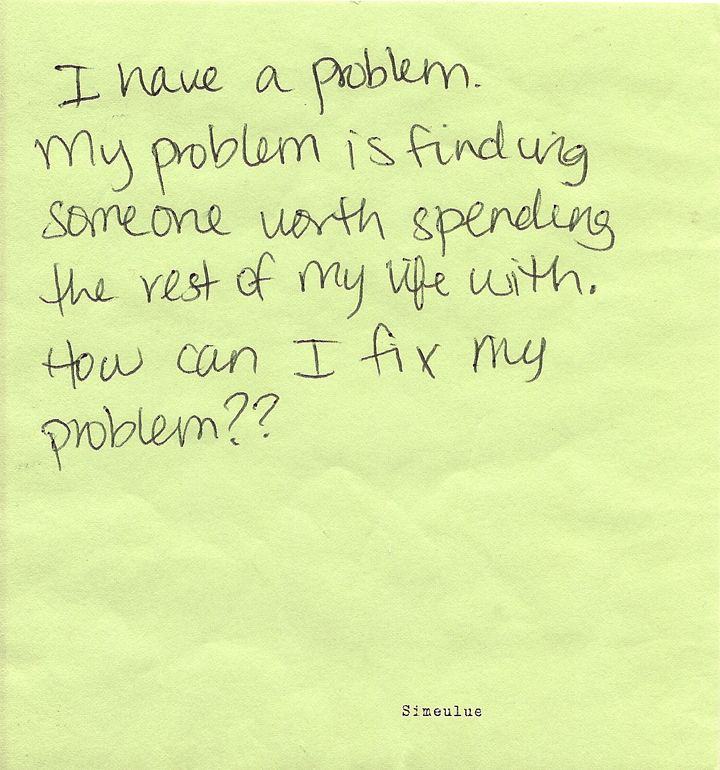 I have a problem.
My problem is finding
someone worth spending
the rest of my life with.
How can I fix my
problem??
Simeulue